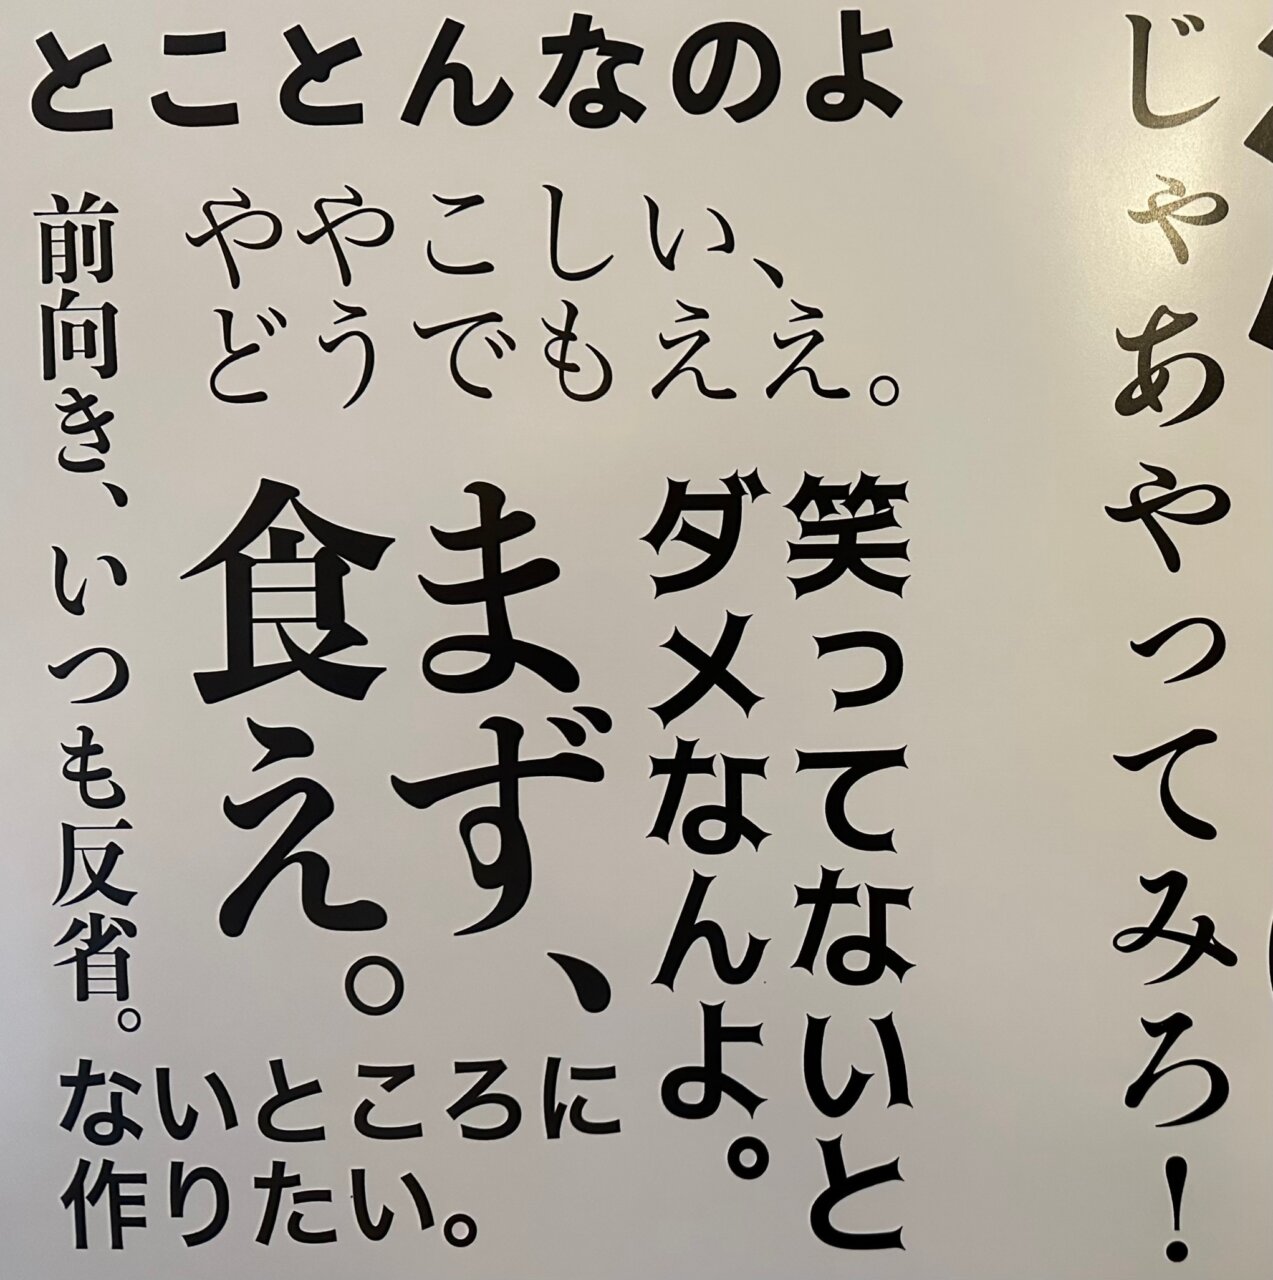 とことんなのよ
ややこしい、
どうでもええ。
前向き、いつも反省。
まず、
食え。
笑ってないと
ダメなんよ。
ないところに
作りたい。
じゃあやってみろ！